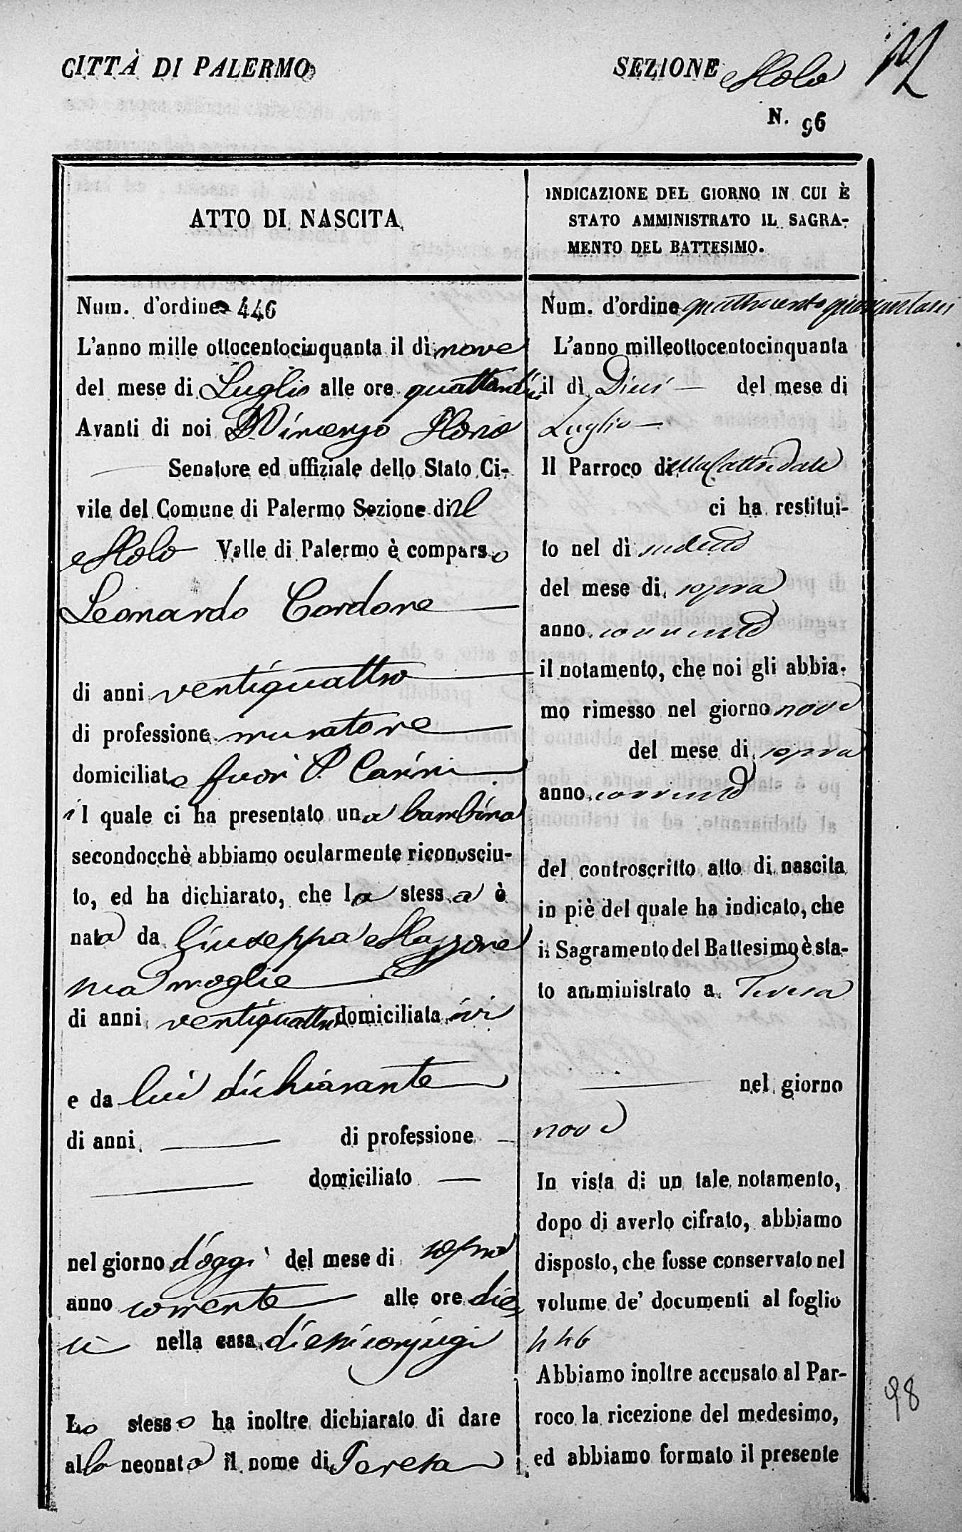 CITTÀ DI PALERMO
SEZIONE Molo
N. 96
ATTO DI NASCITA
Num. d'ordine 446
L'anno mille ottocentocinquanta il dì nove
del mese di Luglio alle ore
Avanti di noi D. Vincenzo Florio
Senatore ed uffiziale dello Stato Ci-
vile del Comune di Palermo Sezione di il
Molo Valle di Palermo è comparso
Leonardo Cordone
di anni ventiquattro
di professione muratore
domiciliato fuori P. Carini
il quale ci ha presentato una bambina
secondocchè abbiamo ocularmente riconosciu-
to, ed ha dichiarato, che la stessa è
nata da Giuseppa Mazzone
sua moglie
di anni ventiquattro domiciliata ivi
e da lui dichiarante
di anni di professione
domiciliato
nel giorno d'oggi del mese di sopra
anno corrente alle ore die
ci nella casa di essi conjugi
Lo stesso ha inoltre dichiarato di dare
alla neonata il nome di Teresa
INDICAZIONE DEL GIORNO IN CUI È
STATO AMMINISTRATO IL SAGRA-
MENTO DEL BATTESIMO.
Num. d'ordine
L'anno milleottocentocinquanta
il dì Dieci del mese di
Luglio
Il Parroco della Cattedrale
ci ha restitui-
to nel dì sudetto
del mese di sopra
anno corrente
il notamento, che noi gli abbia-
mo rimesso nel giorno nove
del mese di sopra
anno corrente
del controscritto atto di nascita
in piè del quale ha indicato, che
il Sagramento del Battesimo è sta-
to amministrato a Teresa
nel giorno
nove
In vista di un tale notamento,
dopo di averlo cifrato, abbiamo
disposto, che fosse conservato nel
volume de' documenti al foglio
446
Abbiamo inoltre accusato al Par-
roco la ricezione del medesimo,
ed abbiamo formato il presente
98